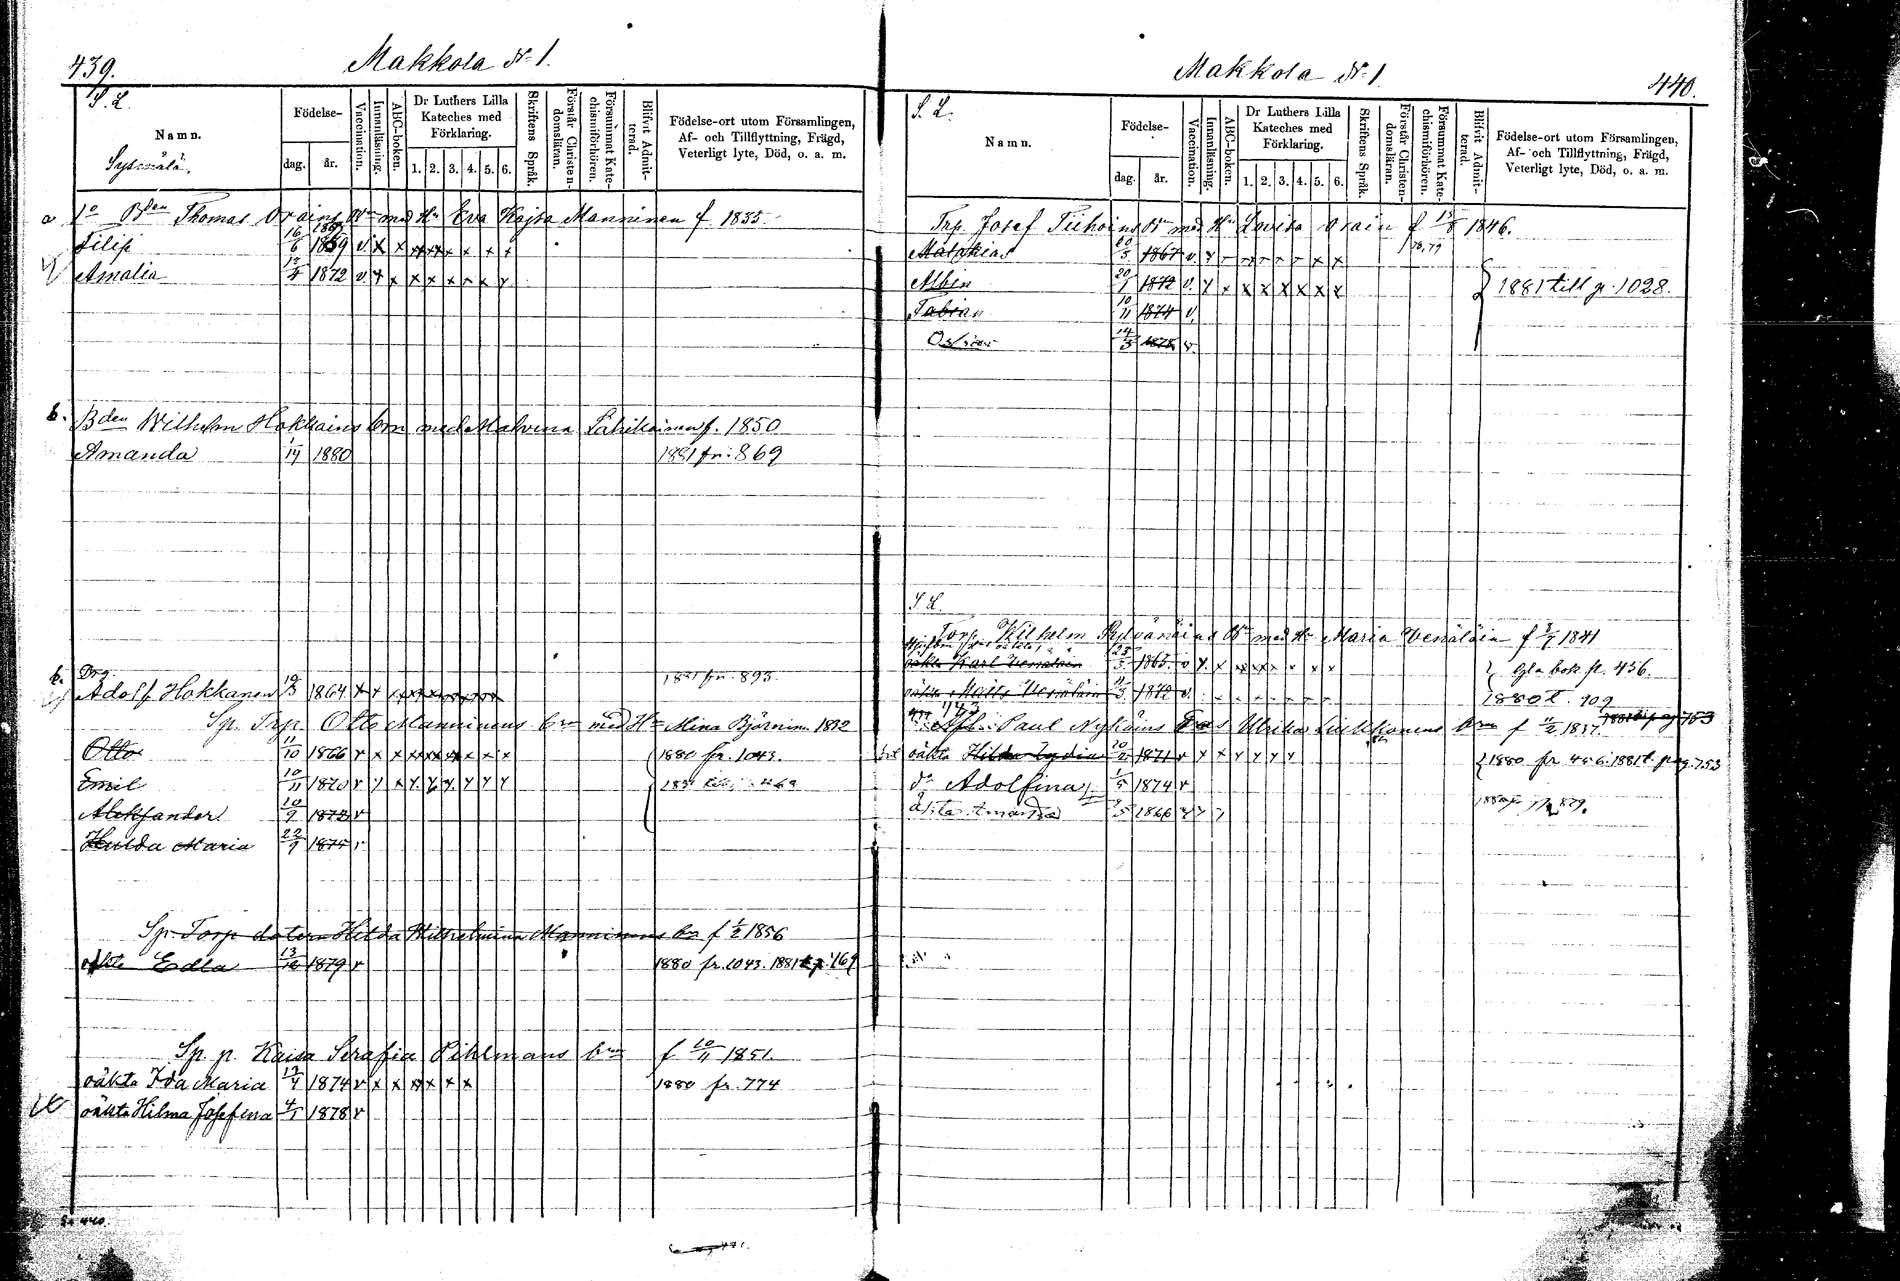 439.
Makkola No 1.
S. L.
Namn.
Sysmälä.
Födelse-
dag. år.
Vaccination.
Innanläsning.
ABC-boken.
Dr Luthers Lilla Kateches med Förklaring.
1. 2. 3. 4. 5. 6.
Skriftens Språk.
Förstår Christendomsläran.
Försummat Katechismiförhören.
Blifvit Admitterad.
Födelse-ort utom Församlingen, Af- och Tillflyttning, Frägd, Veterligt lyte, Död, o. a. m.
a 1o Bden Thomas Orains Bn med Hu Eva Kajsa Manninen f 1835
Filip 16/6 1859 v. x x x x x x x x
Amalia 13/4 1872 v. x x x x x x x x
b. Bden Wilhelm Hokkains brn med Malvina Lahikainen f. 1850
Amanda 1/14 1880 1881 fr. 869
b. Drg
Adolf Hokkanen 19/3 1864 x x x x x x x x x 1881 fr. 893.
Sp. Trp. Otto Manninens brn med Hu Mina Björninen 1832
Otto 11/10 1866 v x x x x x x x x 1880 fr. 1043.
Emil 10/11 1870 v y x y y y y y y
Aleksander 10/9 1872 v
Hulda Maria 22/9 1875 v
Sp. Torp. dotern Hilda Wilhelmina Manninens bn f 1/2 1856
oäkta Edla 13/12 1879 v 1880 fr. 1043. 1881 t. p. 769
Sp. p. Kaisa Serafia Pihlmans brn f 10/11 1851.
oäkta Ida Maria 19/4 1874 v x x x x x x 1880 fr. 774
oäkta Hilma Josefina 4/1 1878 v
Makkola No 1
440.
S. L.
Namn.
Födelse-
dag. år.
Vaccination.
Innanläsning.
ABC-boken.
Dr Luthers Lilla Kateches med Förklaring.
1. 2. 3. 4. 5. 6.
Skriftens Språk.
Förstår Christendomsläran.
Försummat Katechismiförhören.
Blifvit Admitterad.
Födelse-ort utom Församlingen, Af- och Tillflyttning, Frägd, Veterligt lyte, Död, o. a. m.
Trp. Josef Tiihoins Bn med Hu Lovisa Orain f 15/8 1846.
Matthias 20/5 1867 v. 78, 79
Albin 20/1 1872 v. y x x x x x x x 1881 till p. 1028.
Fabian 10/11 1874 v.
Oskar 14/5 1878 v.
S L.
Torp. Wilhelm Pylvänäins Bn med Hu Maria Venäläin f 8/9 1841
oäkta Karl Venäläin 23/5 1865 v y x x x x x x x gla bok p. 456.
oäkta Matts Venäläin 11/3 1872 v. 1880 t. 109
Paul Nykäins Ulrika Luukkonens brn f 11/2 1837. 753
oäkta Hilda Lydia 20/2 1871 v x x y y y y 1880 fr 456. 1881 t. pag. 753
do Adolfina 1/5 1874 v
äkta Amanda 1866 879.